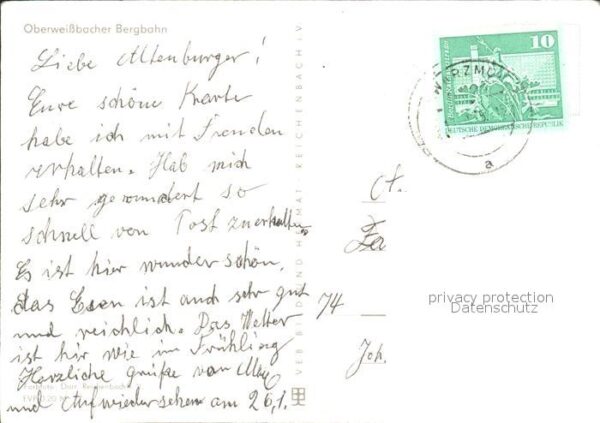 Oberweißbacher Bergbahn
Liebe Altenburger!
Eure schöne Karte
habe ich mit Freuden
erhalten. Hab mich
sehr gewundert so
schnell von Post zuerhalten.
Es ist hier wunderschön,
das Esen ist auch sehr gut
und reichlich. Das Wetter
ist hir wie im Frühling
Herzliche grüße von
und Aufwiedersehen am 26,1.
VEB BILD UND HEIMAT REICHENBACH i.V.
10
DEUTSCHE DEMOKRATISCHE REPUBLIK
a
74
Joh.
privacy protection
Datenschutz